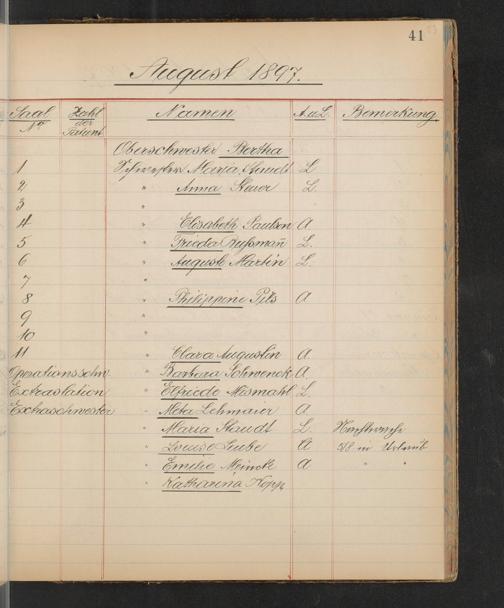 41
August 1897.
Saal No Zahl der Patient. Namen A.u.L. Bemerkung.
Oberschwester Bertha
1 Schwester Maria Staudt L.
2 " Anna Steuer L.
3 "
4 " Elisabeth Paulsen A
5 " Frieda Rußmañ L.
6 " Auguste Martin L.
7 "
8 " Philippine Pils A
9 "
10 "
11 " Clara Augustin A.
Operationsschw. " Barbara Schwenck A.
Extrastation " Elfriede Mismahl L.
Extraschwester " Meta Lehmaier A
" Maria Staudt L.
" Louise Leube A in Urlaub
" Emilie Meincke A " "
" Katharina Hopp